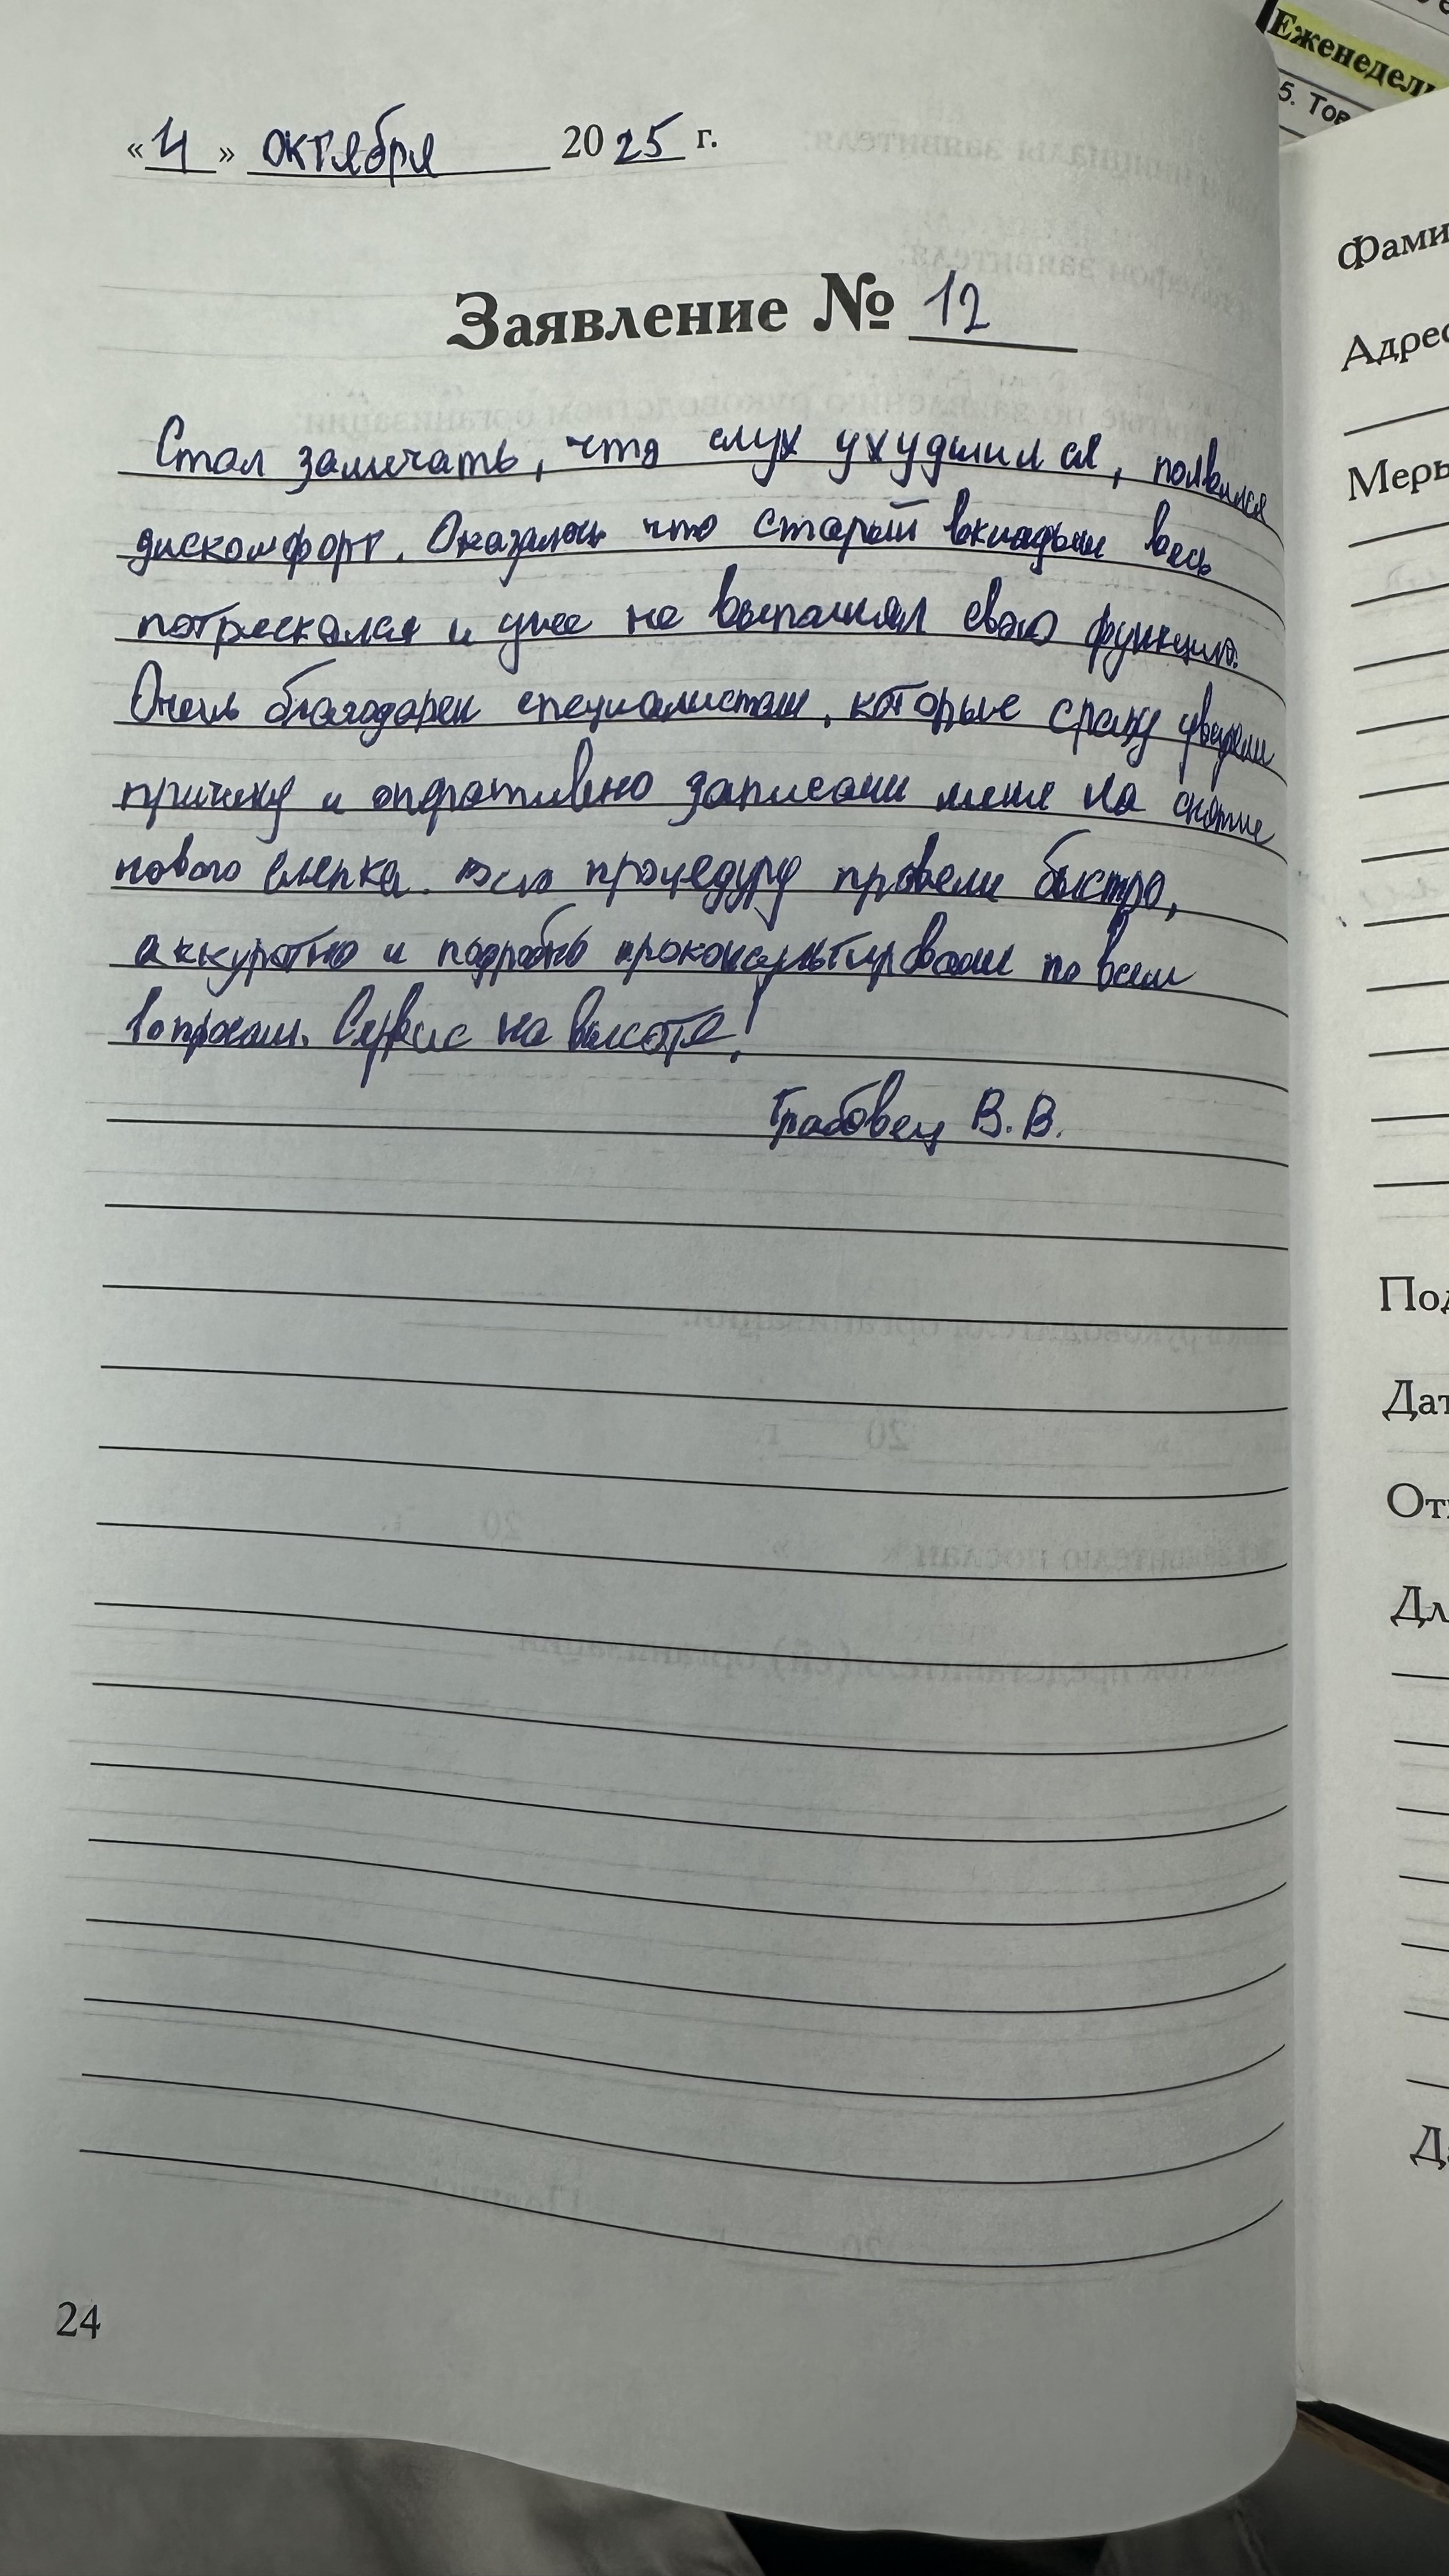 Еженедель
5. Тов
«4» октября 2025 г.
Заявление № 12
Стал замечать, что слух ухудшился, появился
дискомфорт. Оказалось что старый вкладыш весь
потрескался и уже не выполнял свою функцию.
Очень благодарен специалистам, которые сразу увидели
причину и оперативно записали меня на снятие
нового слепка. Всю процедуру провели быстро,
аккуратно и подробно проконсультировали по всем
вопросам. Сервис на высоте!
Грабовец В.В.
24
Фами
Адрес
Меры
Под
Дат
От
Дл
Д